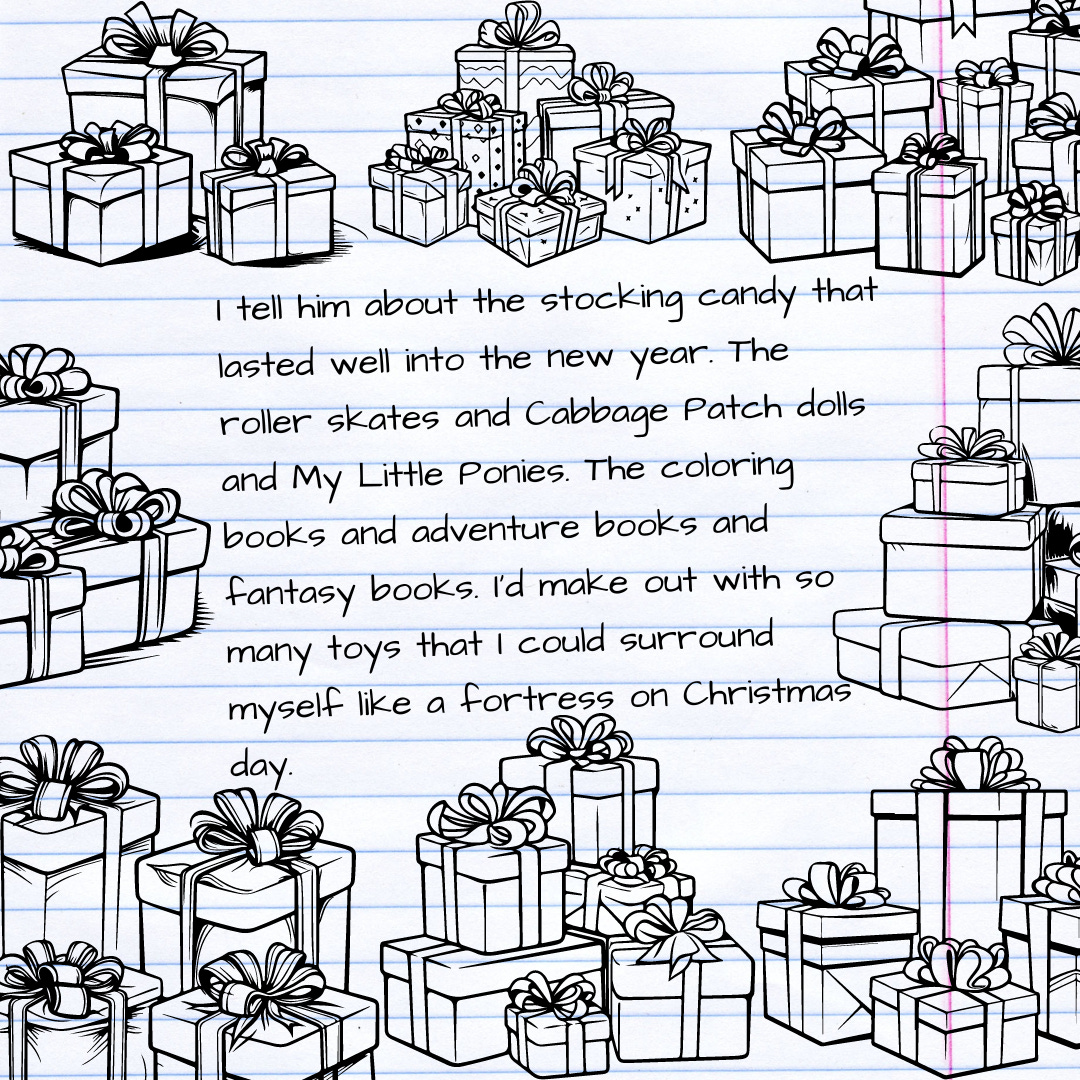 I tell him about the stocking candy that
lasted well into the new year. The
roller skates and Cabbage Patch dolls
and My Little Ponies. The coloring
books and adventure books and
fantasy books. I'd make out with so
many toys that I could surround
myself like a fortress on Christmas
day.